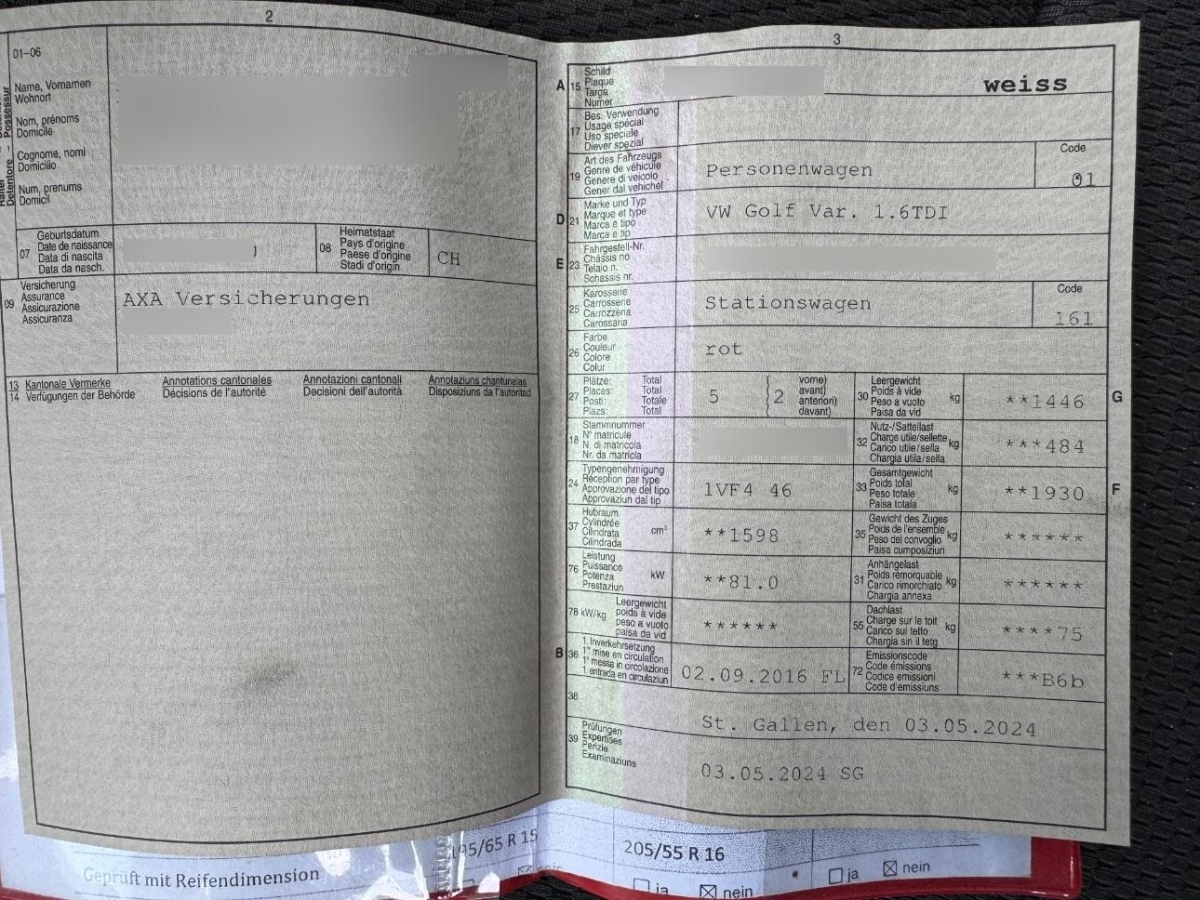 2
01-06
Name, Vornamen
Wohnort
Nom, prénoms
Domicile
Cognome, nomi
Domicilio
Num, prenums
Domicil
Detentore - Possessur
07
Geburtsdatum
Date de naissance
Data di nascita
Data da nasch.
08
Heimatstaat
Pays d'origine
Paese d'origine
Stadi d'origin
CH
09
Versicherung
Assurance
Assicurazione
Assicuranza
AXA Versicherungen
13 Kantonale Vermerke
14 Verfügungen der Behörde
Annotations cantonales
Décisions de l'autorité
Annotazioni cantonali
Decisioni dell'autorità
Annotaziuns chantunalas
Disposiziuns da l'autoritad
3
A
15
Schild
Plaque
Targa
Numer
weiss
17
Bes. Verwendung
Usage spécial
Uso speciale
Diever spezial
19
Art des Fahrzeugs
Genre de véhicule
Genere di veicolo
Gener dal vehichel
Personenwagen
Code
01
D
21
Marke und Typ
Marque et type
Marca e tipo
Marca e tip
VW Golf Var. 1.6TDI
E
23
Fahrgestell-Nr.
Châssis no
Telaio n.
Schassis nr.
25
Karosserie
Carrosserie
Carrozzeria
Carossaria
Stationswagen
Code
161
26
Farbe
Couleur
Colore
Colur
rot
27
Plätze: Total
Places: Total
Posti: Totale
Plazs: Total
5
2
vorne)
avant)
anteriori)
davant)
30
Leergewicht
Poids à vide
Peso a vuoto
Paisa da vid
kg
**1446
G
18
Stammnummer
N° matricule
N. di matricola
Nr. da matricla
32
Nutz-/Sattellast
Charge utile/sellette
Carico utile/sella
Chargia utila/sella
kg
***484
24
Typengenehmigung
Réception par type
Approvazione del tipo
Approvaziun dal tip
1VF4 46
33
Gesamtgewicht
Poids total
Peso totale
Paisa totala
kg
**1930
F
37
Hubraum
Cylindrée
Cilindrata
Cilindrada
cm³
**1598
35
Gewicht des Zuges
Poids de l'ensemble
Peso del convoglio
Paisa cumposiziun
kg
******
76
Leistung
Puissance
Potenza
Prestaziun
kW
**81.0
31
Anhängelast
Poids remorquable
Carico rimorchiato
Chargia annexa
kg
******
78 kW/kg
Leergewicht
poids à vide
peso a vuoto
paisa da vid
******
55
Dachlast
Charge sur le toit
Carico sul tetto
Chargia sin il tetg
kg
****75
B
36
1. Inverkehrsetzung
1re mise en circulation
1a messa in circolazione
1. entrada en circulaziun
02.09.2016 FL
72
Emissionscode
Code émissions
Codice emissioni
Code d'emissiuns
***B6b
38
St. Gallen, den 03.05.2024
39
Prüfungen
Expertises
Perizie
Examinaziuns
03.05.2024 SG
Geprüft mit Reifendimension
195/65 R 15
205/55 R 16
ja
nein
ja
nein